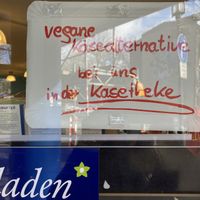 vegane
Käsealternative
bei uns
in der Käsetheke
laden